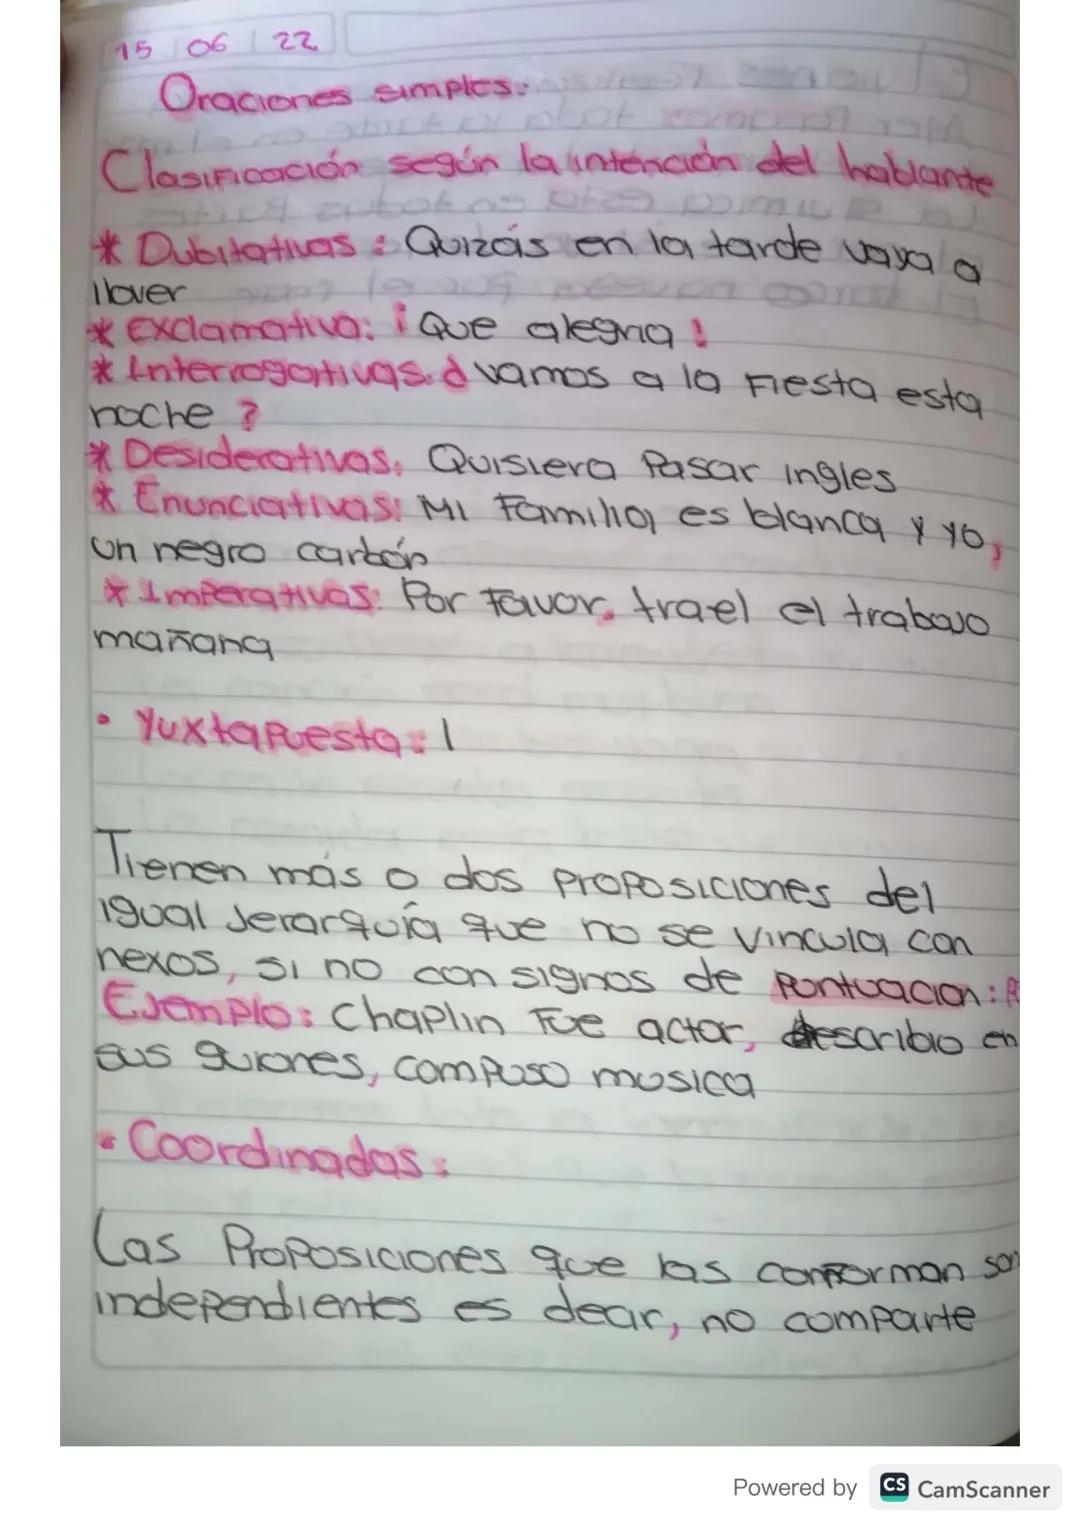 15 06 22
Oraciones simples:
Clasificación según la intención del hablante
* Dubitativas: Quizás en la tarde vaya a
llover
* Exclamativa: ¡Que alegria!
* Interrogativas: ¿vamos a la Fiesta esta
noche?
* Desiderativas: Quisiera Pasar ingles
* Enunciativas: Mi Familia, es blanca y yo,
un negro carbón
* Imperativas: Por Favor, trael el trabajo
mañana
• Yuxtapuesta: |
Tienen más o dos proposiciones del
igual Jerarquía que no se vincula con
nexos, si no con signos de Pontuacion:
Ejemplo: Chaplin Fue actor, describio en
sus guiones, compuso musica
• Coordinadas:
Las Proposiciones que las conforman son
independientes es decir, no comparte
Powered by CS CamScanner